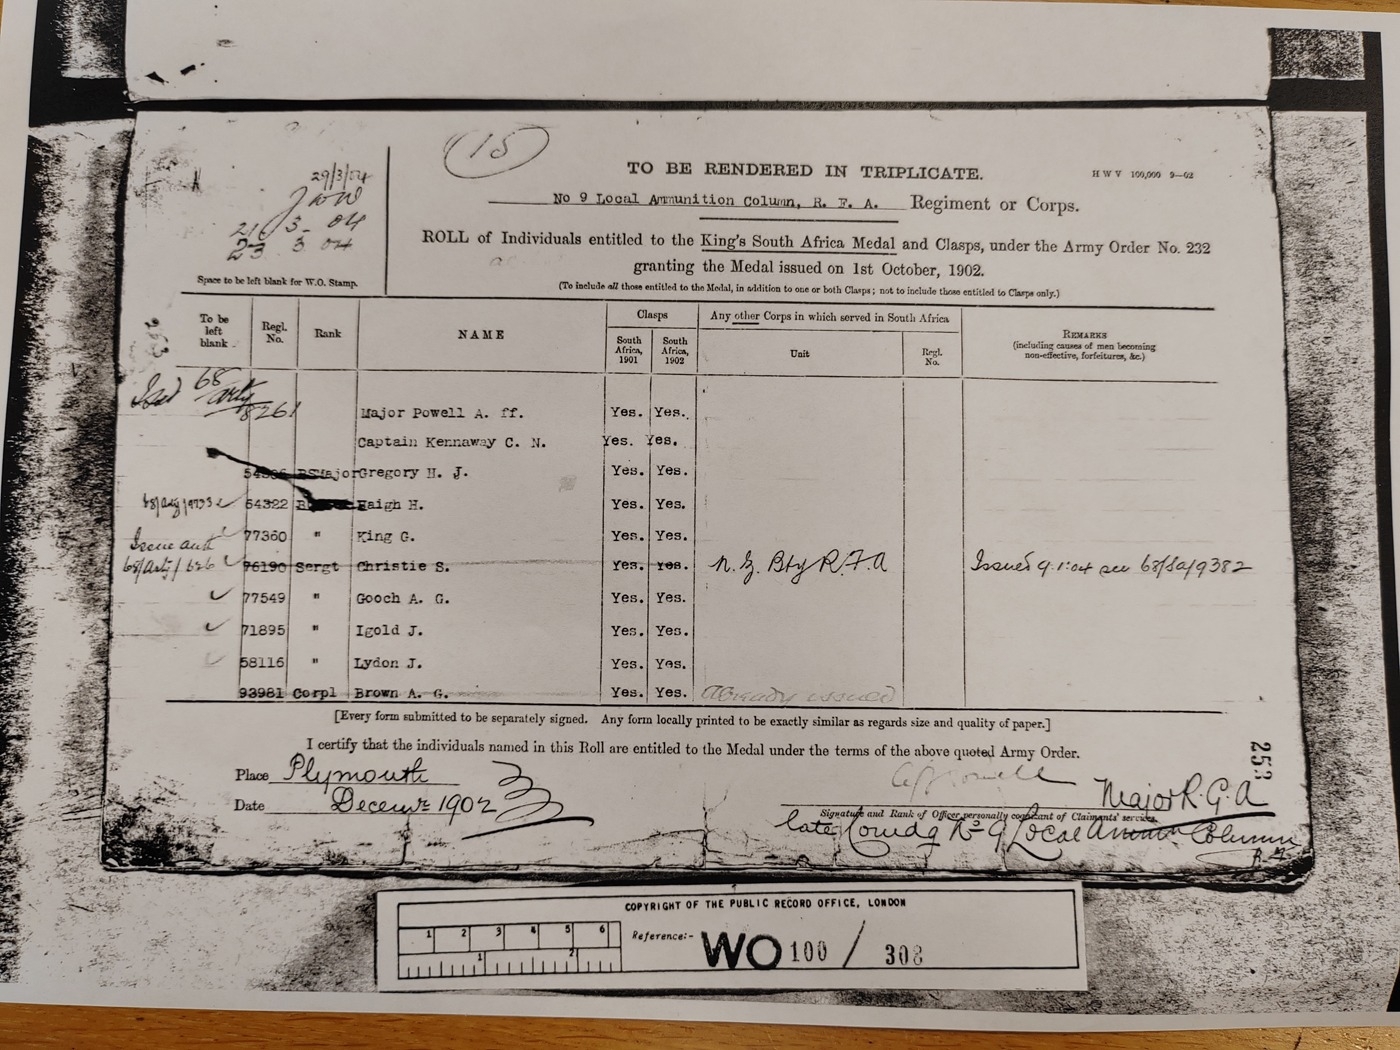 (15)
29/3/04
21/3-04
23 3 04
TO BE RENDERED IN TRIPLICATE.
H W V 100,000 9—02
No 9 Local Ammunition Column, R. F. A. Regiment or Corps.
ROLL of Individuals entitled to the King's South Africa Medal and Clasps, under the Army Order No. 232
granting the Medal issued on 1st October, 1902.
Space to be left blank for W.O. Stamp.
(To include all those entitled to the Medal, in addition to one or both Clasps; not to include those entitled to Clasps only.)
To be left blank. Regl. No. Rank NAME Clasps Any other Corps in which served in South Africa REMARKS
South Africa, 1901 South Africa, 1902 Unit Regl. No. (including causes of men becoming non-effective, forfeitures, &c.)
Issd 68/Arty/8261
Major Powell A. ff. Yes. Yes.
Captain Kennaway C. N. Yes. Yes.
BSMajor Gregory H. J. Yes. Yes.
64322 Haigh H. Yes. Yes.
77360 " King G. Yes. Yes.
Issue auth
68/Arty/626 76190 Sergt Christie S. Yes. Yes. N.Z. Bty R.F.A Issued 9.1.04 see 68/Sa/9382
77549 " Gooch A. G. Yes. Yes.
71895 " Igold J. Yes. Yes.
58116 " Lydon J. Yes. Yes.
93981 Corpl Brown A. G. Yes. Yes. Already issued
[Every form submitted to be separately signed. Any form locally printed to be exactly similar as regards size and quality of paper.]
I certify that the individuals named in this Roll are entitled to the Medal under the terms of the above quoted Army Order.
Place Plymouth
Date Decemr 1902
Major R.G.A
Signature and Rank of Officer personally cognizant of Claimants' services.
late Comdg No 9 Local Ammn Column
253
COPYRIGHT OF THE PUBLIC RECORD OFFICE, LONDON
1 2 3 4 5 6
1 2
Reference:- WO 100 / 308